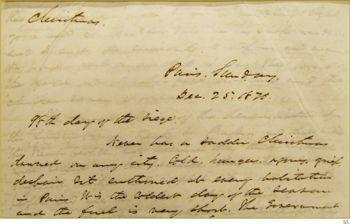 Christmas.
Paris, Sunday,
Dec. 25. 1870.
98th day of the siege.
Never has a sadder Christmas
dawned on any city. Cold, hunger, agony, grief
despair sit enthroned at every habitation
in Paris. It is the coldest day of the season
and the fuel is very short. The Government